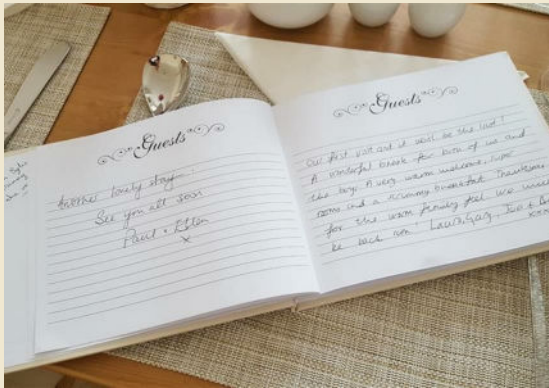 Guests
Another lovely stay.
See you all soon
Paul + Ellen
x
Guests
Our first visit and it won't be the last!
A wonderful break for both of us and
the boys. A very warm welcome, super
rooms and a yummy breakfast. Thankyou
for the warm family feel we will
be back xxx Laura, Gaz,
xxxx